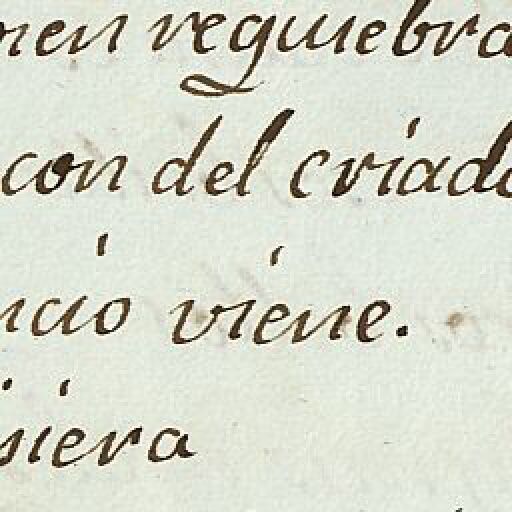 men reguiebra
con del criado
ncio viene.
isiera